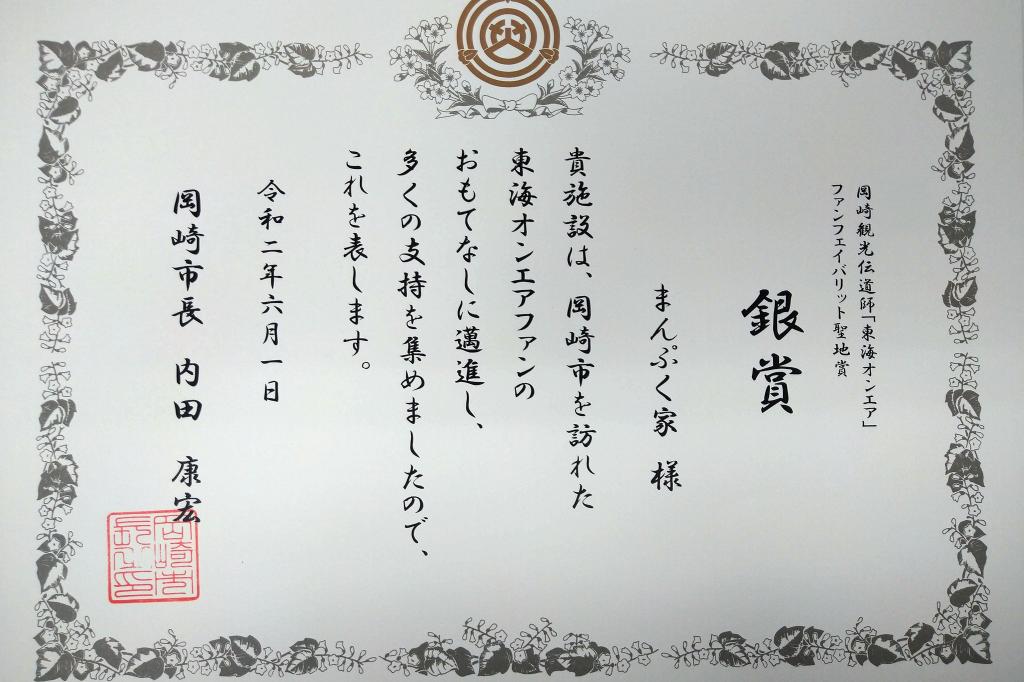 岡崎観光伝道師「東海オンエア」
ファンフェイバリット聖地賞
銀賞
まんぷく家 様
貴施設は、岡崎市を訪れた
東海オンエアファンの
おもてなしに邁進し、
多くの支持を集めましたので、
これを表します。
令和二年六月一日
岡崎市長 内田 康宏
岡崎市
長之印